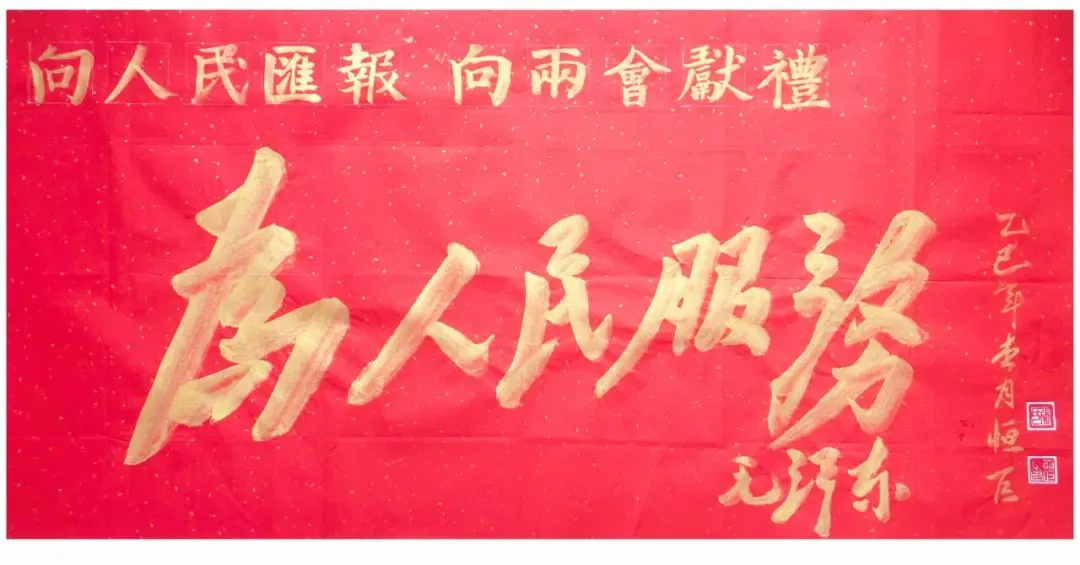 向人民匯報 向兩會獻禮
為人民服務
毛澤东
乙巳年
恒